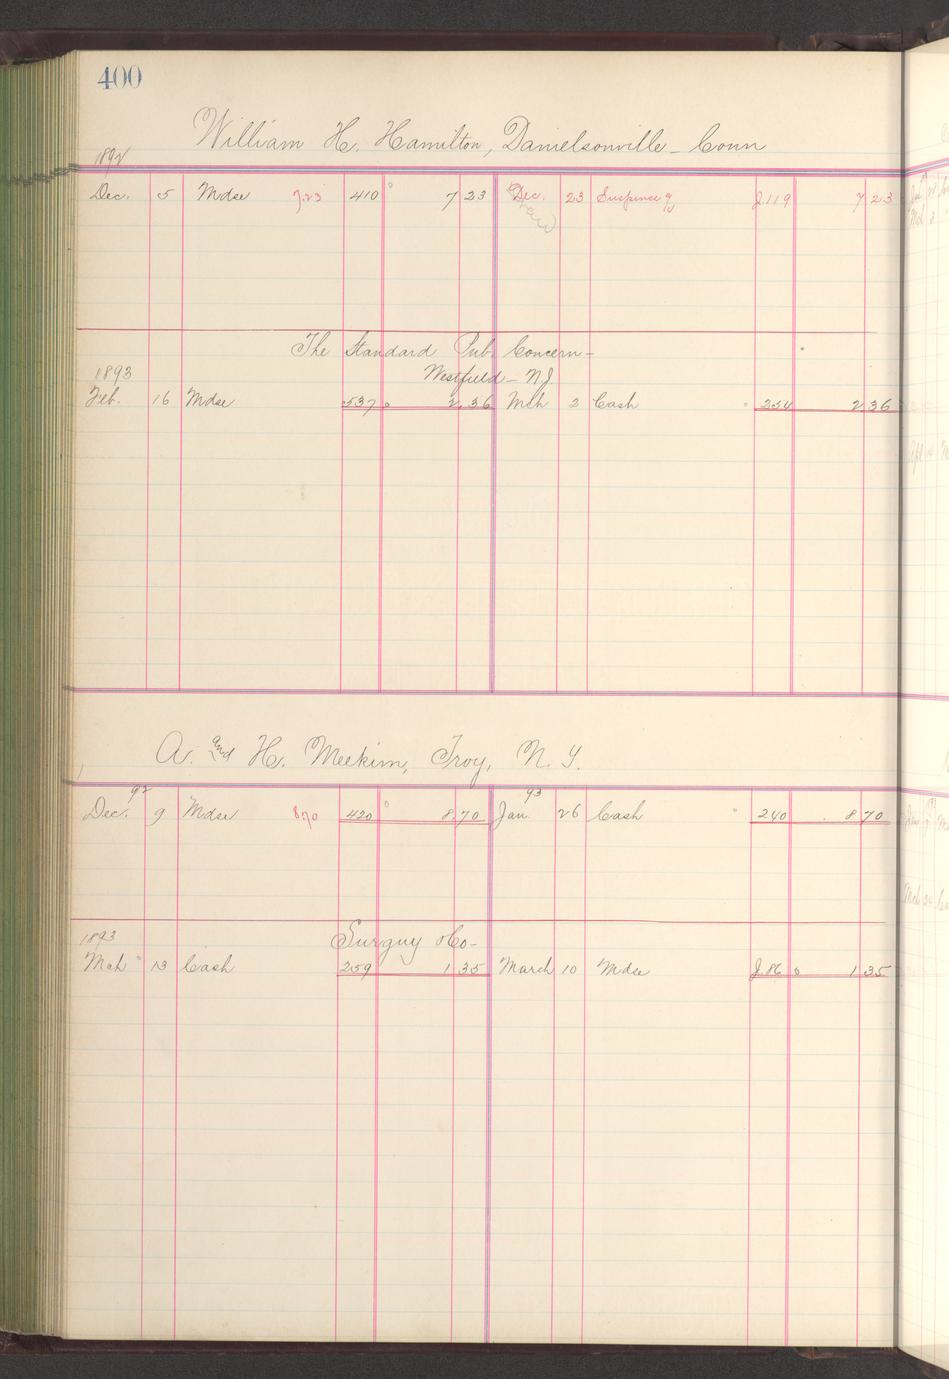 400
William H. Hamilton, Danielsonville - Conn
1892
Dec. 5 Mdse 7.23 410 7 23 Dec. 23 Suspense a/c J.119 7 23
The Standard Pub. Concern -
1893 Westfield - N.J.
Feb. 16 Mdse 537 2.36 Mch 2 Cash 254 2 36
A. and H. Meekim, Troy, N.Y.
92 93
Dec. 9 Mdse 8.70 420 8 70 Jan. 26 Cash 240 8 70
1893 Surguy & Co -
Mch 13 Cash 259 1 35 March 10 Mdse J.86 1 35